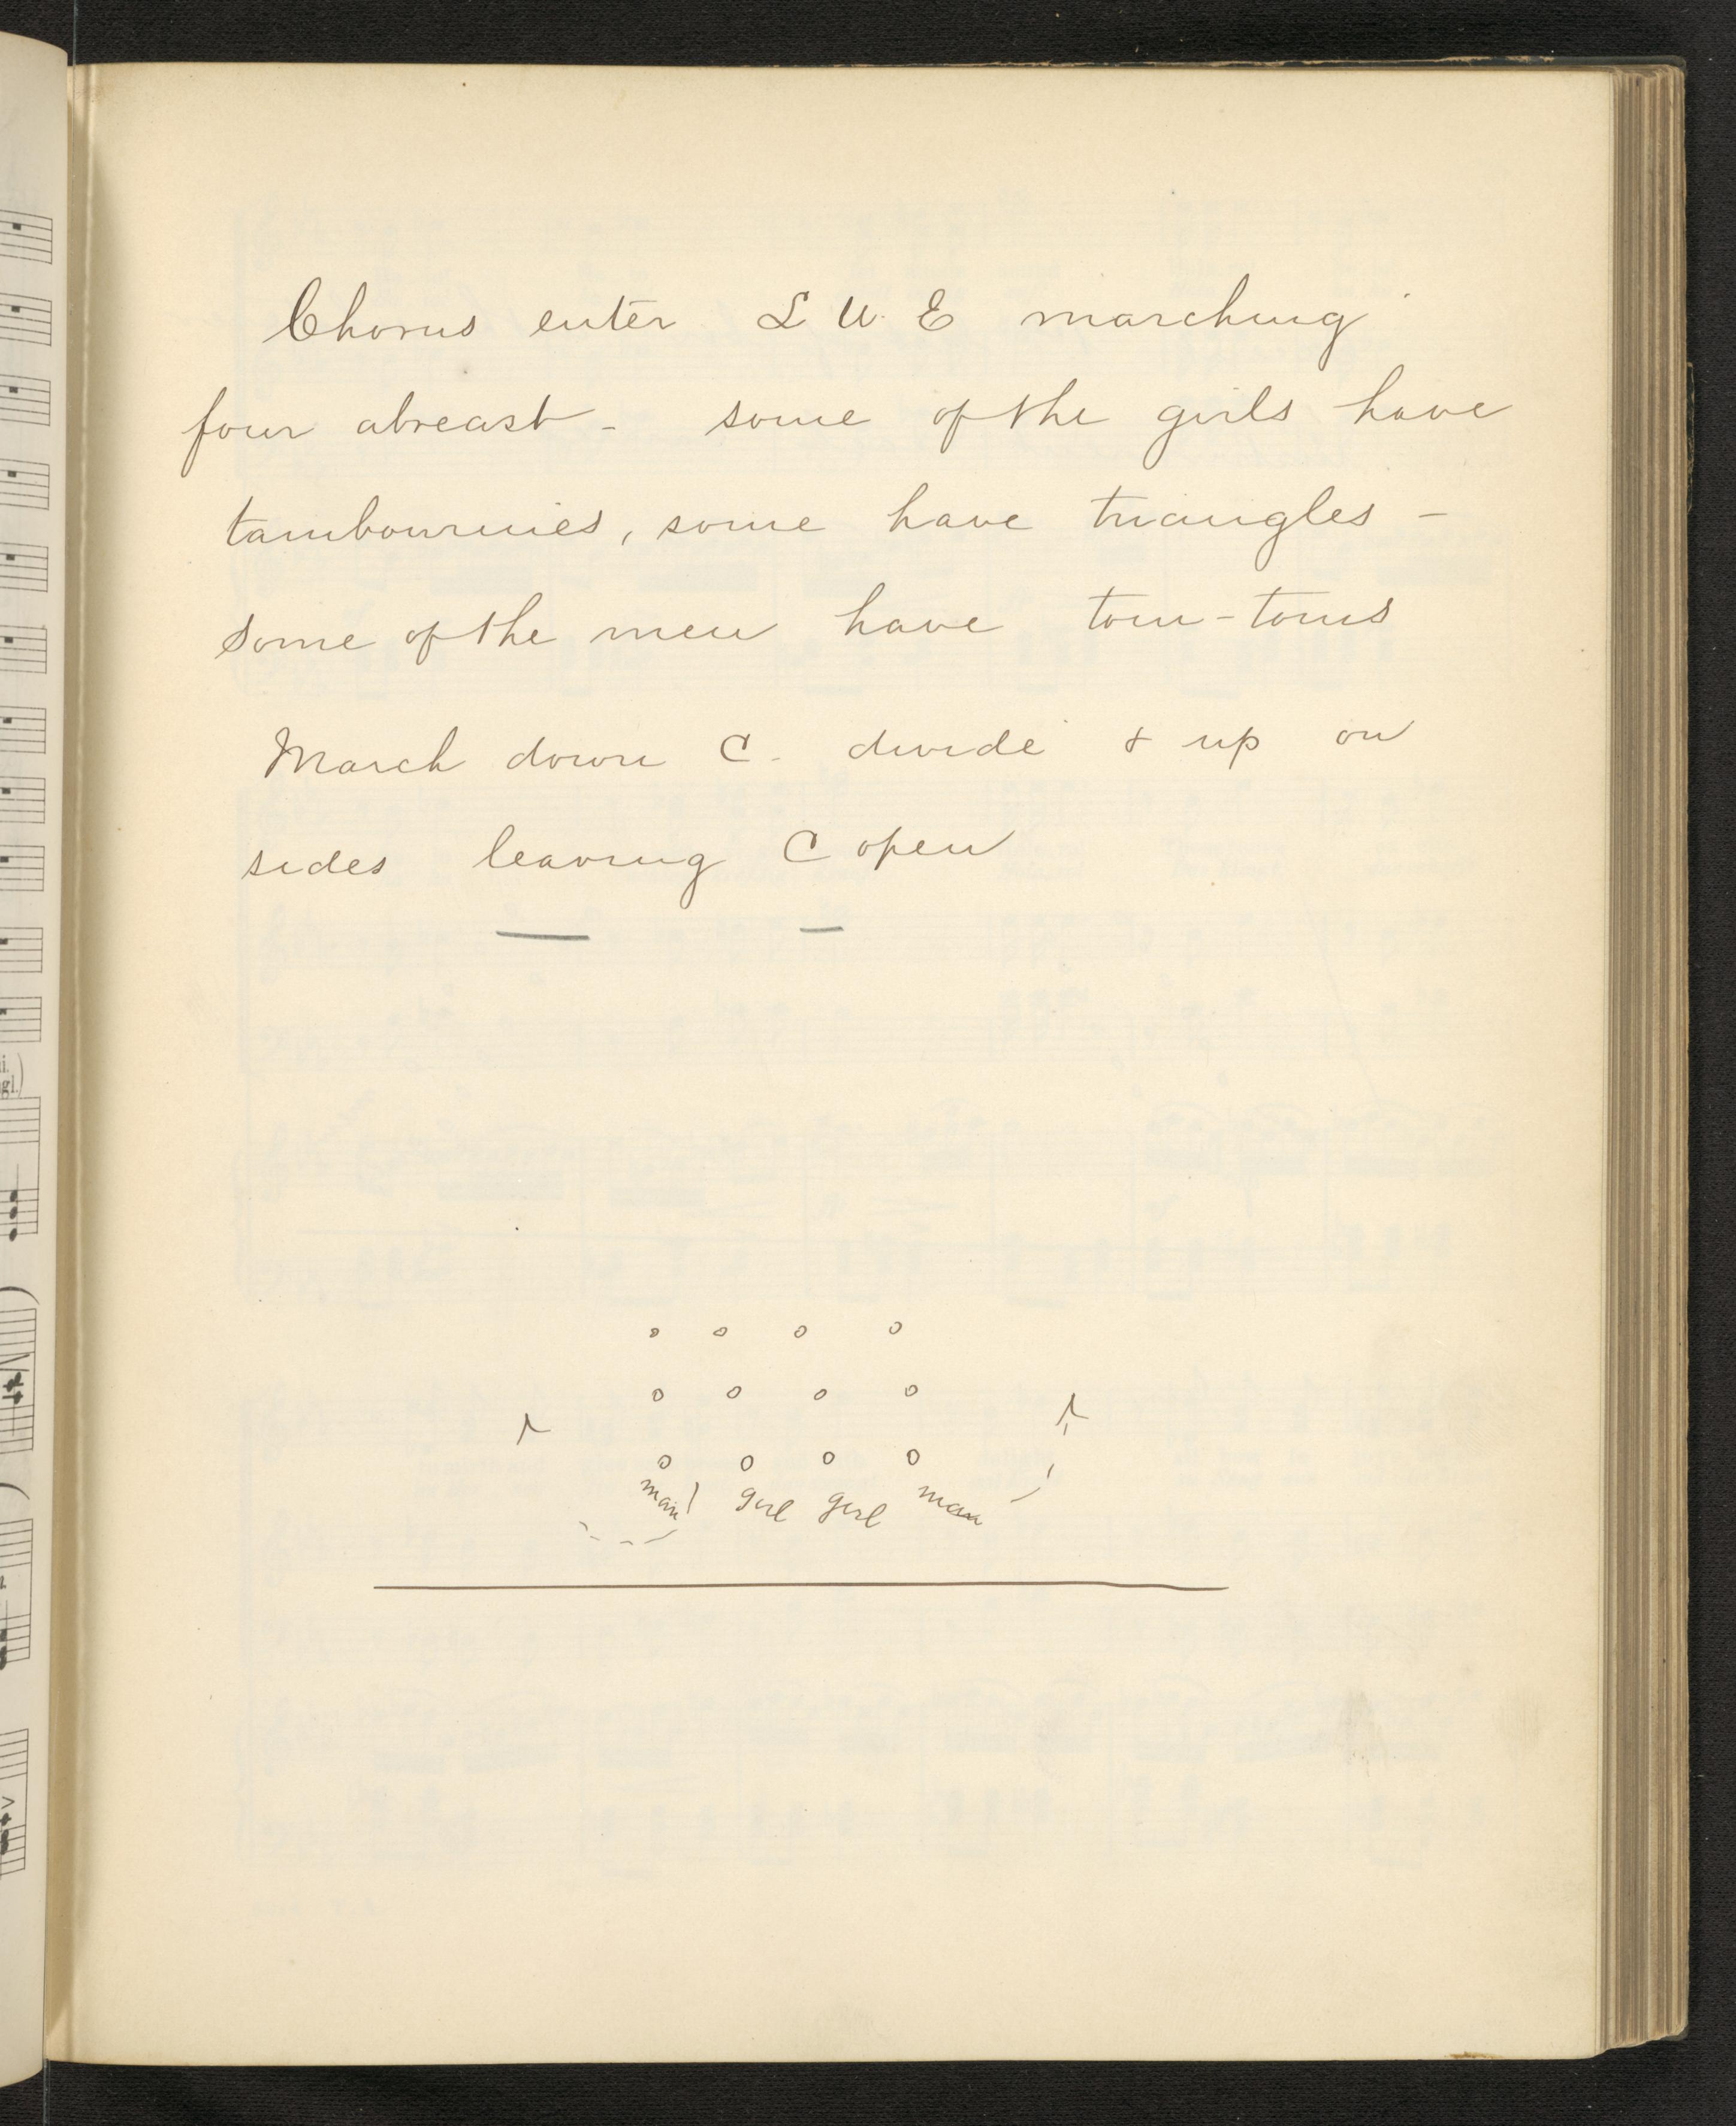 Chorus enter L U. E marching
four abreast - some of the girls have
tambourines, some have triangles -
some of the men have tom-toms
March down C. divide & up on
sides leaving C open
man girl girl man